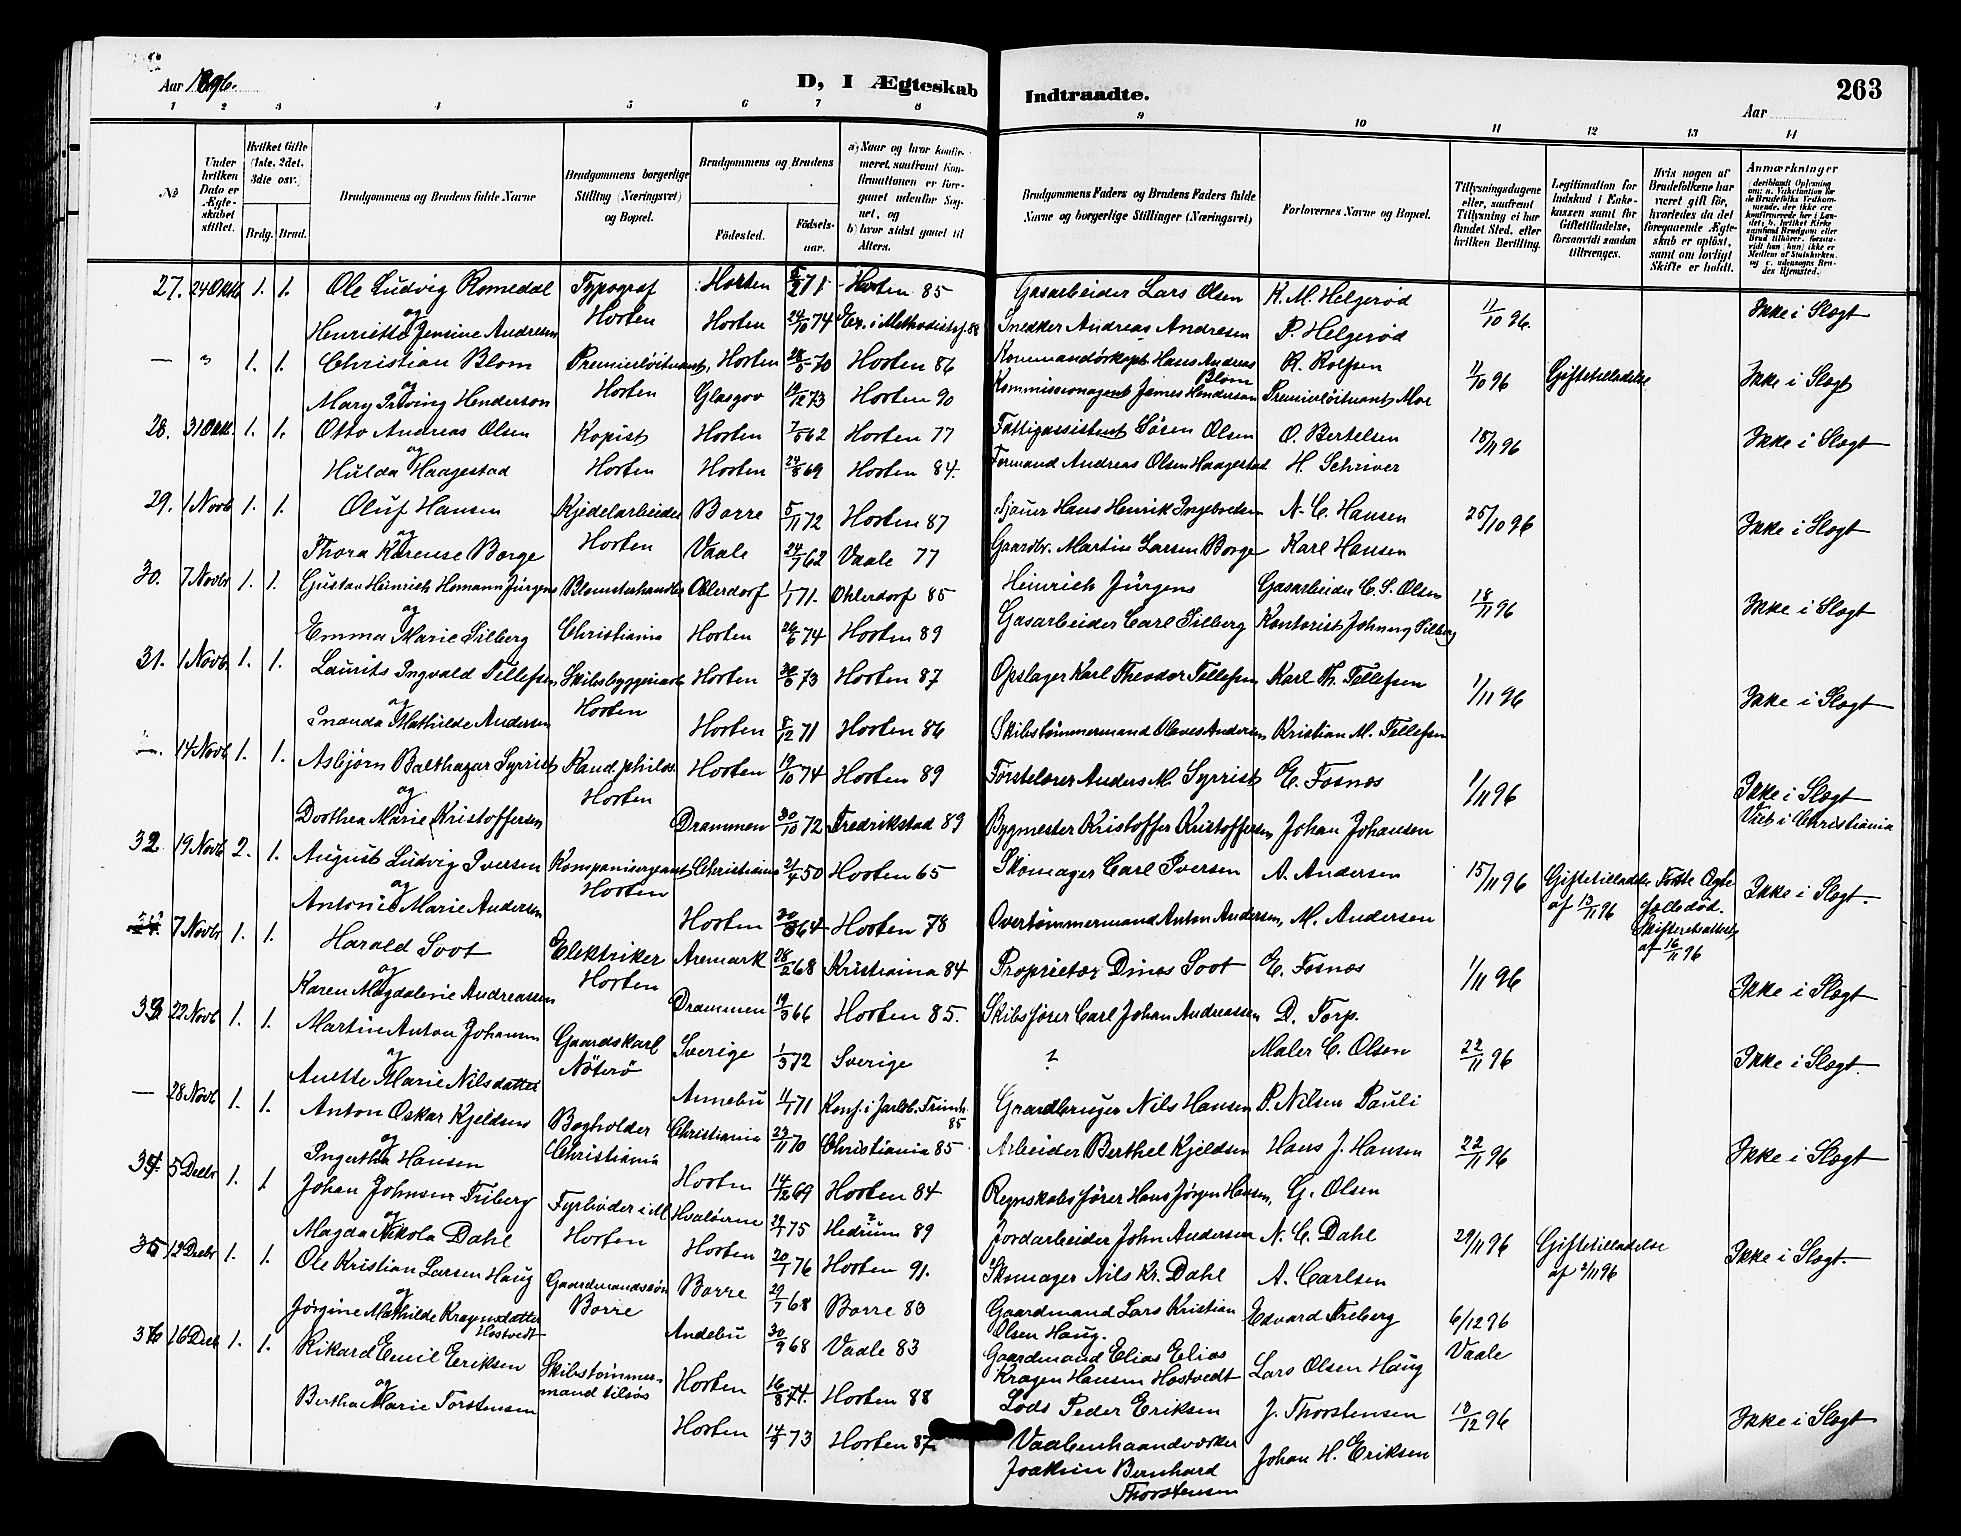 Aar 1896.
D, I Ægteskab Indtraadte.
Aar
263
1 2 3 4 5 6 7 8 9 10 11 12 13 14
No
Under hvilken Dato er Ægteskabet stiftet.
Hvilket Gifte (1ste, 2det, 3die osv.)
Brdg. Brud.
Brudgommens og Brudens fulde Navne
Brudgommens borgerlige Stilling (Næringsvei) og Bopæl.
Brudgommens og Brudens
Fødested.
Fødselsaar.
a) Naar og hvor konfirmeret, saafremt Konfirmationen er foregaaet udenfor Sognet, og
b) hvor sidst gaaet til Alters.
Brudgommens Faders og Brudens Faders fulde Navne og borgerlige Stillinger (Næringsvei)
Forlovernes Navne og Bopæl.
Tillysningsdagene eller, saafremt Tillysning ei har fundet Sted, efter hvilken Bevilling.
Legitimation for Indskud i Enkekassen samt for Giftetilladelse, forsaavidt saadan tiltrænges.
Hvis nogen af Brudefolkene har været gift før, hvorledes da det foregaaende Ægteskab er opløst, samt om lovligt Skifte er holdt.
Anmærkninger
27. 24 Oktb 1. 1. Ole Ludvig Romedal Typograf Horten 71 Horten 85 Gasarbeider Lars Olsen K. M. Helgerød 11/10 96. Ikke i Slægt
og Henriette Jensine Andresen Horten Horten 24/10 74 Snedker Andreas Andresen P. Helgerød
— " 1. 1. Christian Blom Premierløitnant, Horten 28/5 70 Horten 86 Kommandørkapt. Hans Andreas Blom R. Rolfsen 11/10 96 Giftetilladelse Ikke i Slægt
og Mary Irwing Henderson Horten Glasgov 19/12 73 Horten 90 Kommissionagent James Henderson Premierløitnant Moe
28. 31 Oktb. 1. 1. Otto Andreas Olsen Kopist Horten 7/5 62 Horten 77 Fattigassistent Søren Olsen O. Bertelsen 18/11 96 Ikke i Slægt
og Hulda Haagestad Horten Horten 24/8 69 Horten 84. Formand Andreas Olsen Haagestad H. Schriver
29. 1 Novb 1. 1. Oluf Hansen Kjedelarbeider Borre 5/11 72 Horten 87 Sjauer Hans Henrik Ingebretsen A. C. Hansen 25/10 96 Ikke i Slægt
og Thora Karense Borge Horten Vaale 24/7 62 Vaale 77 Gaardbr. Martin Larsen Borge Karl Hansen
30. 7 Novbr 1. 1. Gustav Heinrich Homann Jürgens Blomsterhandler Ohlerdorf 1/1 71. Ohlerdorf 85 Heinrich Jürgens Gasarbeider C. S. Olsen 18/11 96 Ikke i Slægt
og Emma Marie Silberg Christiania Horten 26/6 74 Horten 89 Gasarbeider Carl Silberg Kontorist Johnny Silberg
31. 1 Novb. 1. 1. Laurits Ingvald Tellefsen, Skibsbyggeriarb Horten 73 Horten 87 Opslager Karl Theodor Tellefsen Karl Th. Tellefsen 1/11 96 Ikke i Slægt
og Mathilde Andersen Horten Horten 8/12 71 Horten 86 Skibstømmermand Oleves Andersen Kristian M. Tellefsen
—. 14 Novb 1. 1. Asbjørn Balthazar Syrrist Kand. philos. Horten 19/10 74 Horten 89 Førstelærer Anders M. Syrrist E. Fosnæs 1/11 96 Ikke i Slægt
og Dorthea Marie Kristoffersen Horten Drammen 30/10 72 Fredrikstad 89 Bygmester Kristoffer Kristoffersen Johan Johansen Viet i Christiania
32 19 Novb 2. 1. August Ludvig Iversen Kompanisergeant Christiania 21/4 50 Horten 65 Skomager Carl Iversen A. Andersen 15/11 96 Giftetilladelse af 13/11 96 Første Ægtefælle død. Skifteretsattest af 16/11 96 Ikke i Slægt.
og Antonie Marie Andersen Horten Horten 64 Horten 78 Overtømmermand Anton Andersen, M. Andersen
7 Novbr 1. 1. Harald Soot Elektriker Aremark 28/2 68 Kristiania 84 Proprietær Dines Soot E. Fosnæs 1/11 96 Ikke i Slægt
og Karen Magdalene Andreassen Horten Drammen 19/3 66 Horten 85. Skibsfører Carl Johan Andreassen D. Torp.
33 22 Novb 1. 1. Martin Anton Johansen Gaardskarl Sverige 1/3 72 Sverige ? Maler C. Olsen 22/11 96 Ikke i Slægt.
og Anette Marie Nilsdatter Nøterø Annebu 11/1 71 Konf. i Jarlsb. Frimh. 85 Gaardbruger Nils Hansen P. Nilsen Pauli
— 28 Novb 1. 1. Anton Oskar Kjeldsen Bogholder Christiania 23/11 70 Christiania 85 Arbeider Berthel Kjeldsen Hans J. Hansen 22/11 96 Ikke i Slægt
og Ingertha Hansen Christiania Horten 14/12 69 Horten 84 Regnskabsfører Hans Jørgen Hansen, G. Olsen
34 5 Decbr 1. 1 Johan Johnsen Friberg Fyrbøder i M. Hvaløerne 75 Hedrum ? 89 Jordarbeider John Andersen N. C. Dahl 29/11 96 Giftetilladelse af 2/11 96 Ikke i Slægt.
og Magda Nikola Dahl Horten Horten 20/1 76 Horten 91. Skomager Nils Kr. Dahl A. Carlsen
35 12 Decbr 1. 1. Ole Kristian Larsen Haug Gaardmandssøn Borre 29/7 68 Borre 83 Gaardmand Lars Kristian Olsen Haug. Edvard Freberg 6/12 96 Vaale
og Jørgine Mathilde Kragensdatter Hostvedt Borre Andebu 30/9 68 Vaale 83 Gaardmand Elias Elias Kragen Hansen Hostvedt Lars Olsen Haug
36 16 Decb 1. 1. Rikard Emil Eriksen Skibstømmermand tilsøs Horten 16/8 74. Horten 88 Lods Peder Eriksen J. Thorstensen 13/12 96 Ikke i Slægt
og Bertha Marie Torstensen Horten 14/9 73 Horten 87. Vaabenhaandværker Joakim Bernhard Thorstensen Johan H. Eriksen